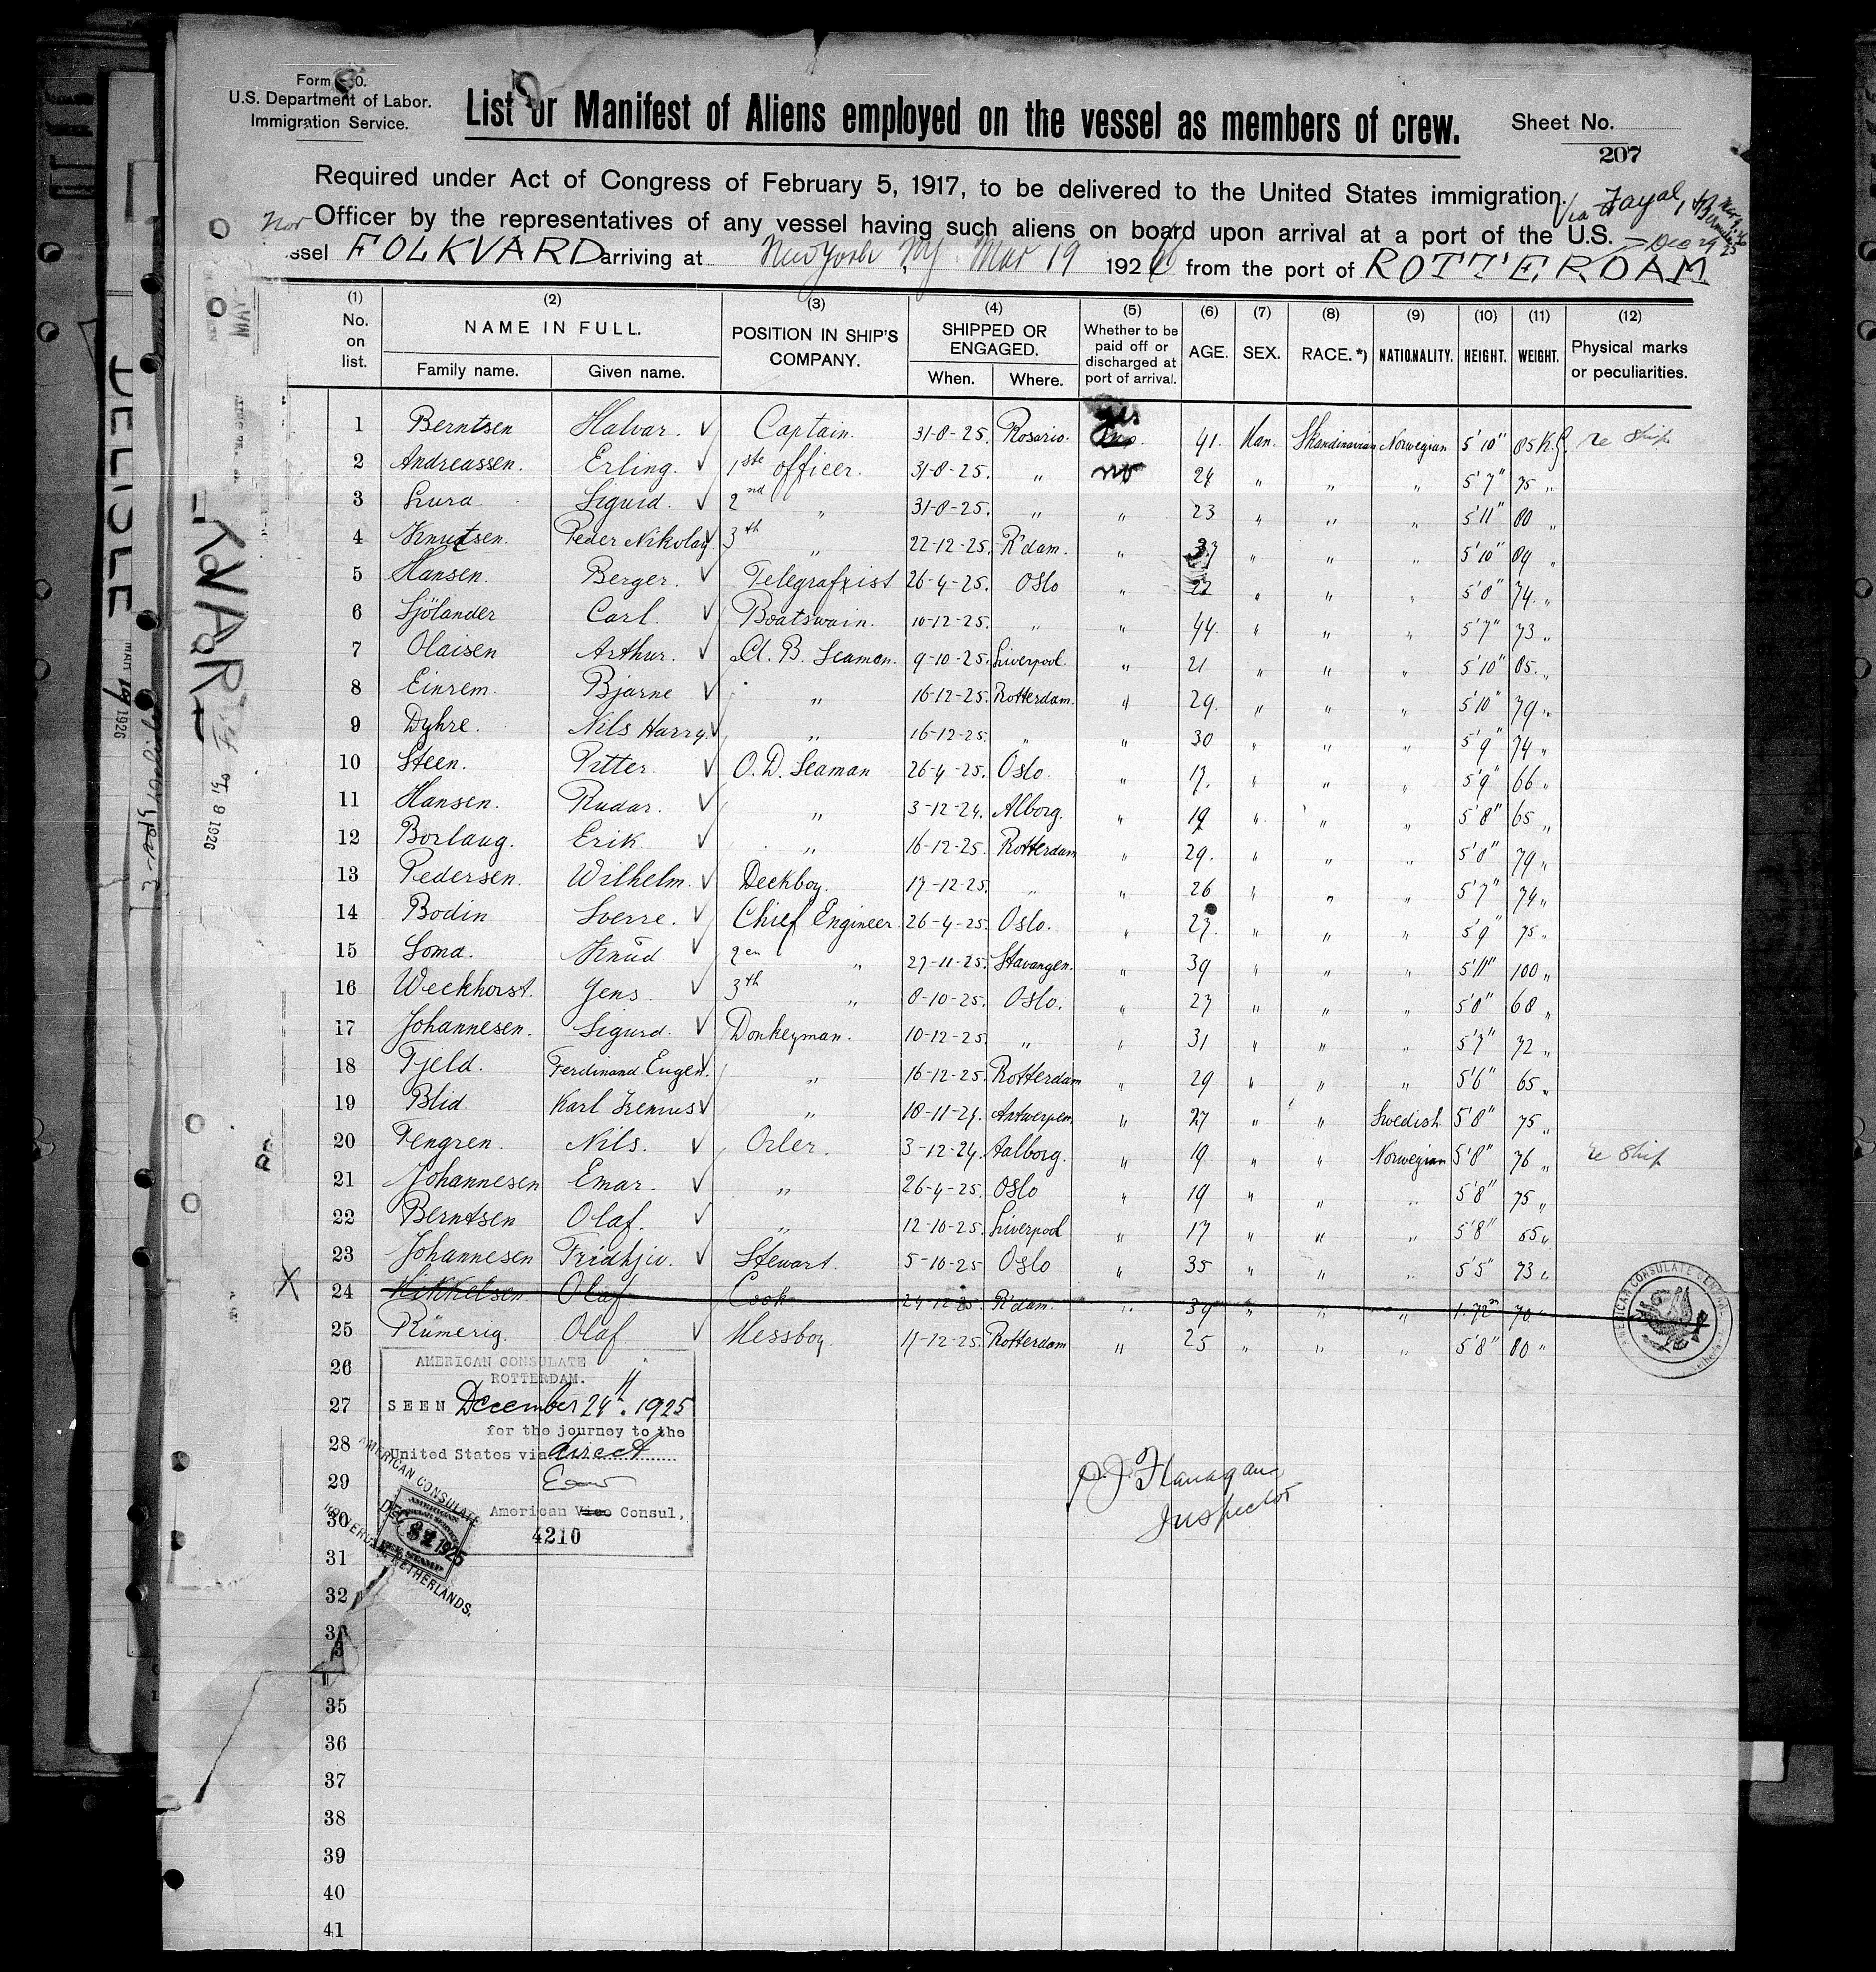 U.S. Department of Labor.
Immigration Service.
List or Manifest of Aliens employed on the vessel as members of crew.
Sheet No.
207
Required under Act of Congress of February 5, 1917, to be delivered to the United States immigration
Via Fayal,
Nor Officer by the representatives of any vessel having such aliens on board upon arrival at a port of the U.S.
Dec 29 25
ssel FOLKVARD arriving at New York NY. Mar 19 1926 from the port of ROTTERDAM
(1) No. on list. (2) NAME IN FULL. Family name. Given name. (3) POSITION IN SHIP'S COMPANY. (4) SHIPPED OR ENGAGED. When. Where. (5) Whether to be paid off or discharged at port of arrival. (6) AGE. (7) SEX. (8) RACE.*) (9) NATIONALITY. (10) HEIGHT. (11) WEIGHT. (12) Physical marks or peculiarities.
1 Berntsen Halvar. ✓ Captain. 31-8-25. Rosario. yes 41. Man. Skandinavian Norwegian 5'10" 85 K.G. re ship
2 Andreassen. Erling. ✓ 1ste officer. 31-8-25. " no 24 " " " 5'7" 75 "
3 Lura Sigurd ✓ 2nd " 31-8-25. " " 23 " " " 5'11" 80 "
4 Knutsen. Peder Nikolay ✓ 3th " 22-12-25. R'dam. " " " " 5'10" 89 "
5 Hansen. Berger. ✓ Telegrafist 26-4-25. Oslo " 22 " " " 5'8" 74 "
6 Sjölander Carl. ✓ Boatswain. 10-12-25. " " 44. " " " 5'7" 73 "
7 Olaisen Arthur. ✓ A. B. Seaman. 9-10-25. Liverpool. " 21 " " " 5'10" 85. "
8 Einrem. Bjarne ✓ " 16-12-25. Rotterdam. " 29. " " " 5'10" 79 "
9 Dyhre. Nils Harry. ✓ " 16-12-25. " " 30 " " " 5'9" 74 "
10 Steen. Pitter. ✓ O.D. Seaman 26-4-25. Oslo. " 17. " " " 5'9" 66 "
11 Hansen. Rudar. ✓ " 3-12-24. Alborg. " 19 " " " 5'8" 65 "
12 Borlaug. Erik. ✓ " 16-12-25. Rotterdam " 29. " " " 5'8" 79 "
13 Pedersen. Wilhelm. ✓ Deckboy. 17-12-25. " " 26 " " " 5'7" 74 "
14 Bodin Sverre. ✓ Chief Engineer 26-4-25. Oslo. " 27. " " " 5'9" 75 "
15 Soma. Knud ✓ 2en " 27-11-25. Stavangen. " 39 " " " 5'11" 100 "
16 Weckhorst. Yens. ✓ 3th " 8-10-25. Oslo. " 27 " " " 5'8" 68 "
17 Johannesen. Sigurd. ✓ Donkeyman. 10-12-25. " " 31 " " " 5'7" 72 "
18 Tjeld. Ferdinand Eugen. ✓ " 16-12-25. Rotterdam " 29 " " " 5'6" 65 "
19 Blid. Karl ✓ " 18-11-24. Antwerpen " 27 " " Swedish 5'8" 75 "
20 Tengren. Nils. ✓ Oiler. 3-12-24. Aalborg. " 19 " " Norwegian 5'8" 76 " re ship
21 Johannesen Emar. ✓ " 26-4-25. Oslo " 19 " " " 5'8" 75 "
22 Berntsen Olaf. ✓ " 12-10-25. Liverpool " 17 " " " 5'8" 55 "
23 Johannesen Fridhjiv. ✓ Stewart. 5-10-25 Oslo " 35 " " " 5'5" 73 "
X 24 Mikkelsen Olaf Cook 24-12-25. R'dam. " 39 " " " 1.72m 70
25 Rümerig. Olaf ✓ Messboy. 17-12-25. Rotterdam " 25 " " " 5'8" 80 "
26
27
28
29
30
31
32
33
35
36
37
38
39
40
41
AMERICAN CONSULATE
ROTTERDAM.
SEEN December 24th. 1925
for the journey to the
United States via direct
American Vice Consul,
4210
AMERICAN CONSULATE
DEC 1925
FEE STAMP
ROTTERDAM, NETHERLANDS.
P. J. Flanagan
Inspector
AMERICAN CONSULATE GENERAL
MAR 19 1926